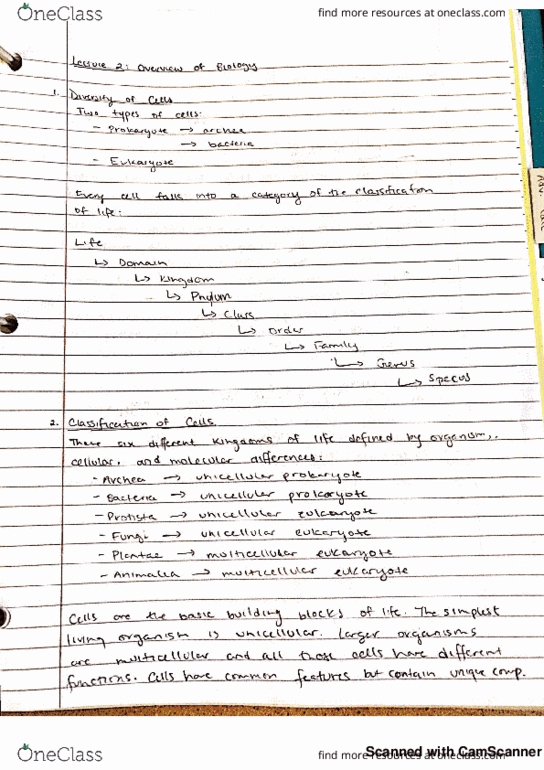 OneClass
find more resources at oneclass.com
Lecture 2: Overview of Biology
1. Diversity of Cells
Two types of cells:
- Prokaryote → archea
→ bacteria
- Eukaryote
Every cell falls into a category of the classification
of life:
Life
↳ Domain
↳ Kingdom
↳ Phylum
↳ Class
↳ Order
↳ Family
↳ Genus
↳ Species
2. Classification of Cells
These six different kingdoms of life defined by organism,
cellular, and molecular differences:
- Archea → unicellular prokaryote
- Bacteria → unicellular prokaryote
- Protista → unicellular eukaryote
- Fungi → unicellular eukaryote
- Plantae → multicellular eukaryote
- Animalia → multicellular eukaryote
Cells are the basic building blocks of life. The simplest
living organism is unicellular. Larger organisms
are multicellular and all those cells have different
functions. Cells have common features but contain unique comp.
OneClass
find more resources at oneclass.com
Scanned with CamScanner